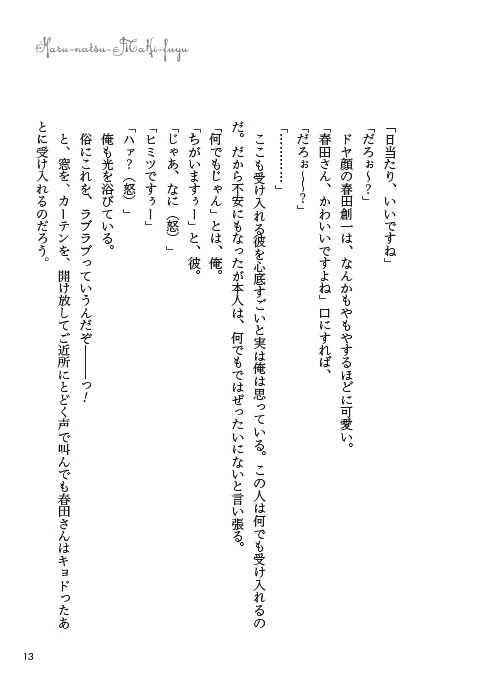 Haru-natsu-Maki-fuyu
「日当たり、いいですね」
「だろぉ～？」
ドヤ顔の春田創一は、なんかもやもやするほどに可愛い。
「春田さん、かわいいですよね」口にすれば、
「だろぉ～～？」
「…………」
ここも受け入れる彼を心底すごいと実は俺は思っている。この人は何でも受け入れるの
だ。だから不安にもなったが本人は、何でもではぜったいにないと言い張る。
「何でもじゃん」とは、俺。
「ちがいますぅー」と、彼。
「じゃあ、なに（怒）」
「ヒミツですぅー」
「ハァ？（怒）」
俺も光を浴びている。
俗にこれを、ラブラブっていうんだぞ――っ！
と、窓を、カーテンを、開け放してご近所にとどく声で叫んでも春田さんはキョドったあ
とに受け入れるのだろう。
13